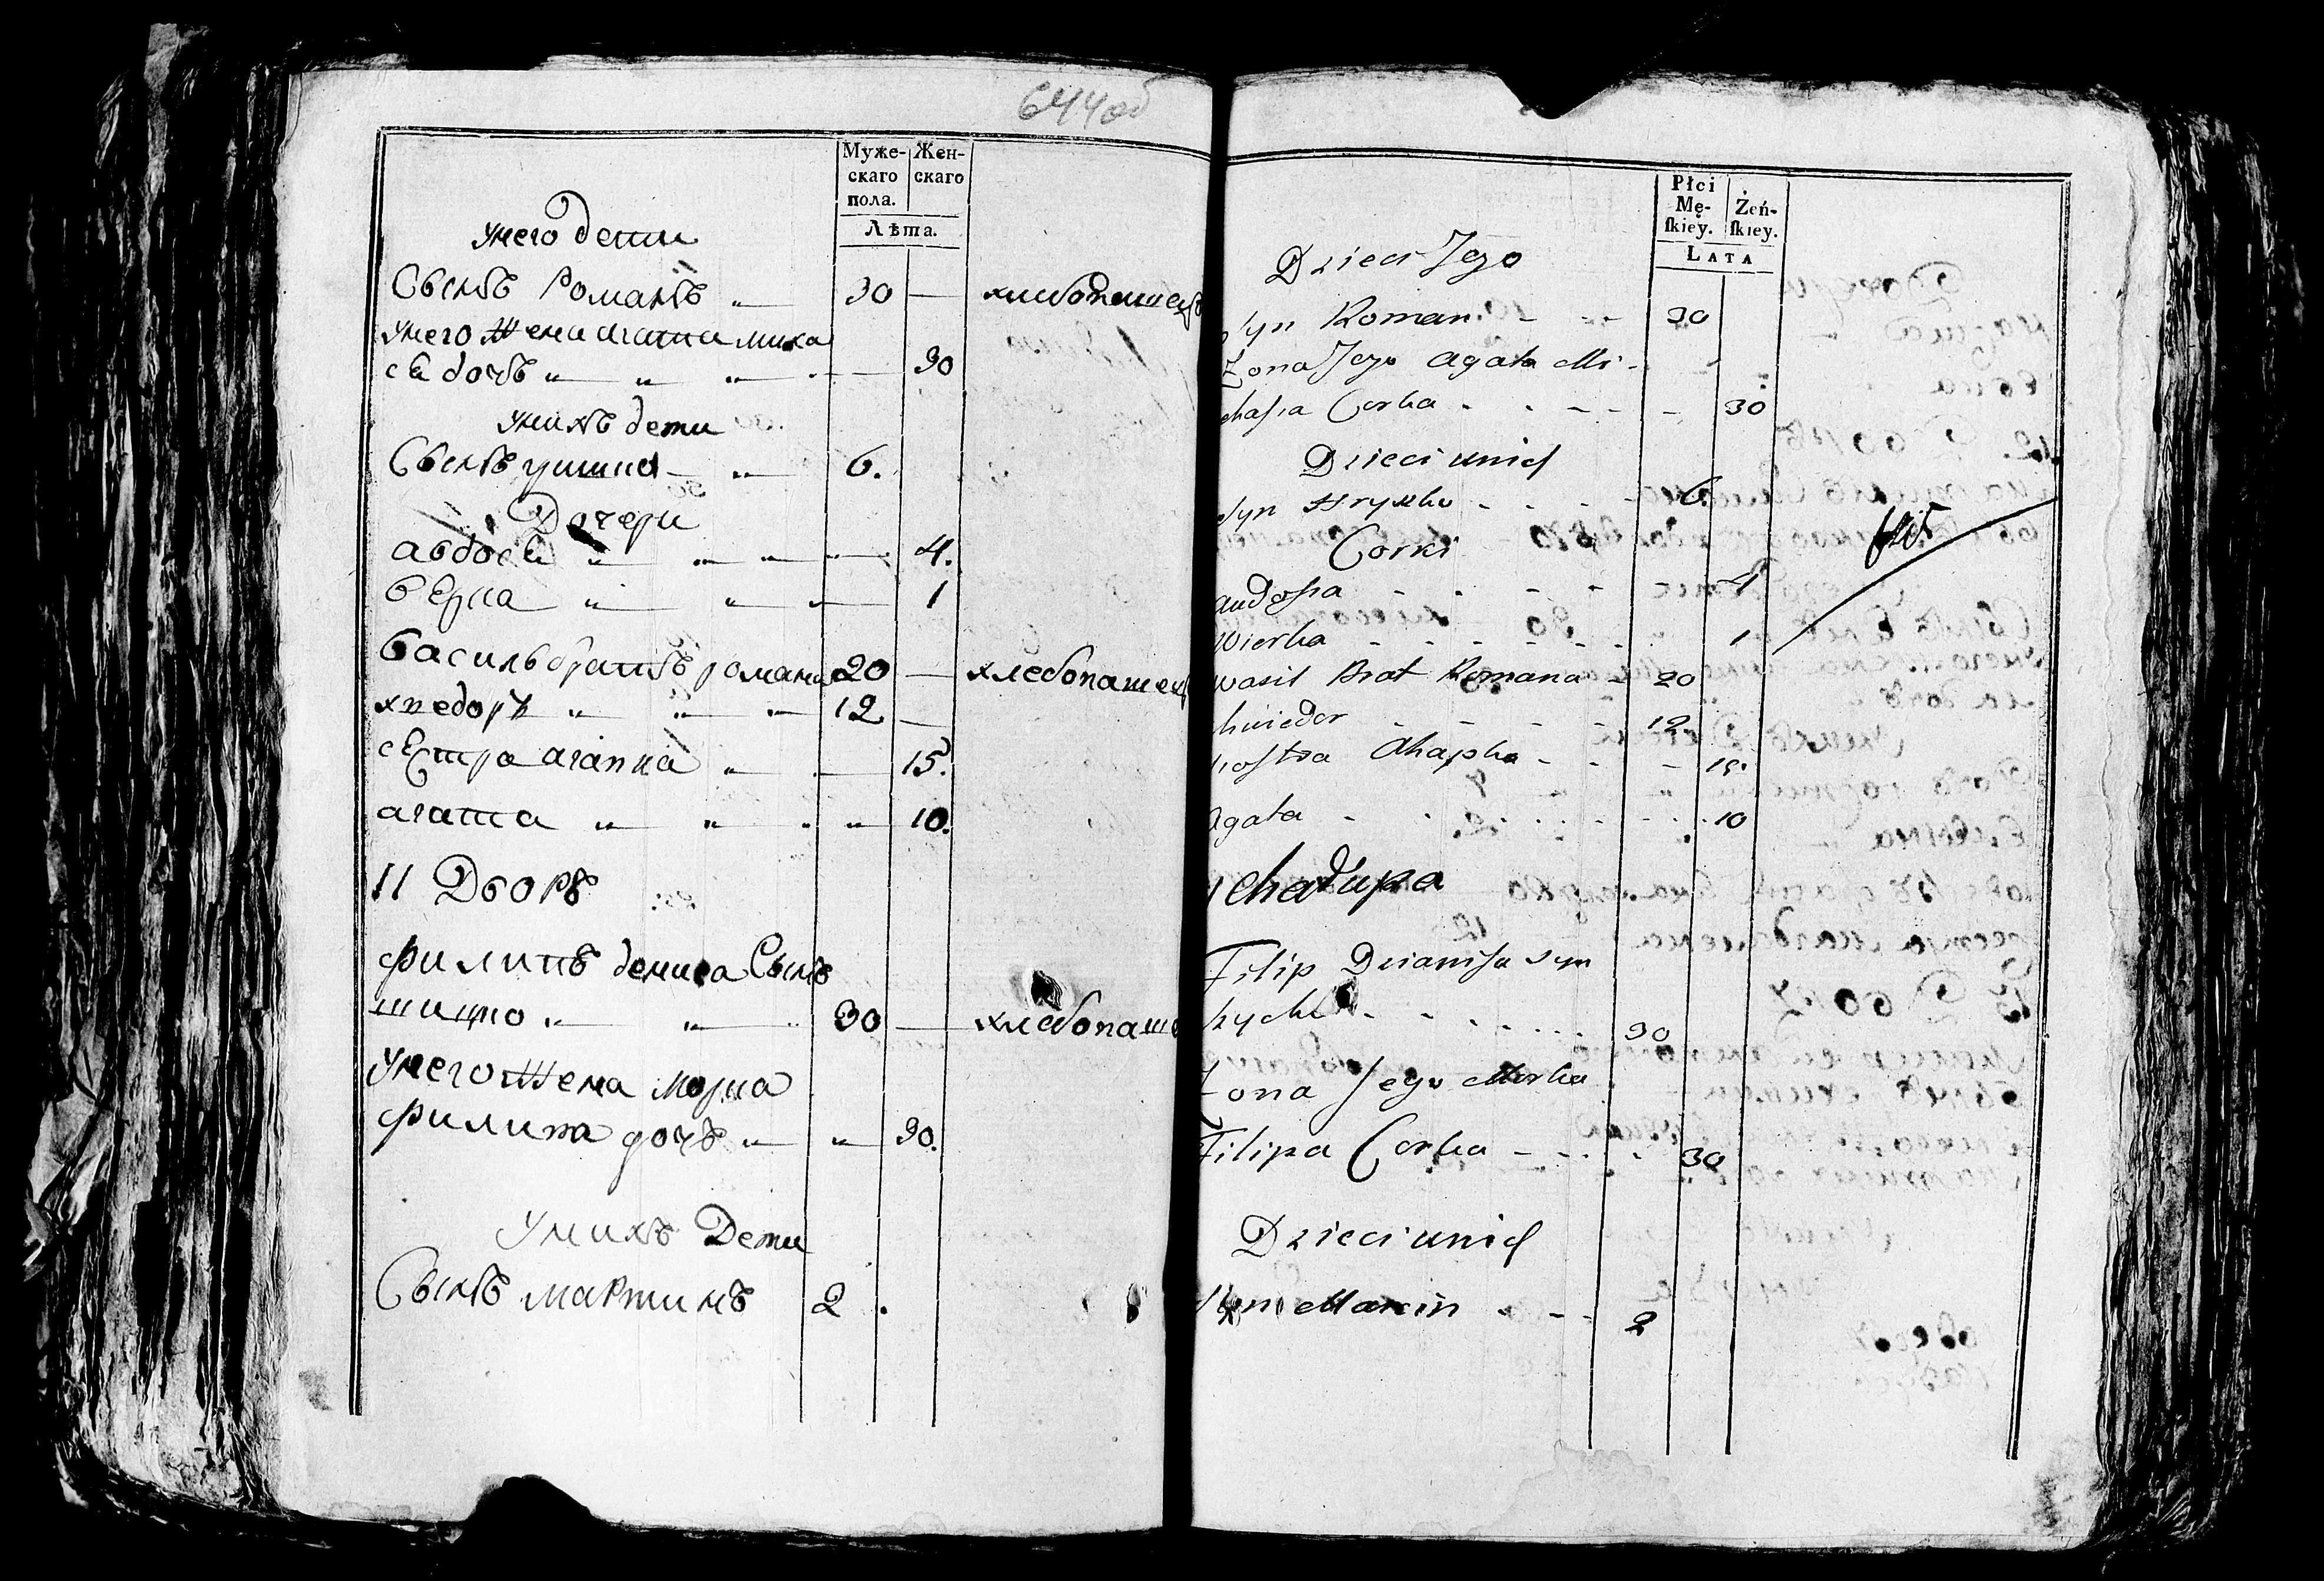 644об
Муже-
скаго
пола.
Жен-
скаго
Лѣта.
унего дети
Сынъ Романъ 30 — хлебопашецъ
унего жена агата миха
сѣ дочъ 30
унихъ дети
Сынъ 6.
Дочери
авдося 4.
вѣрка 1
василь братъ романа 20 — хлебопашец
хведоръ 12 —
сестра агапка 15.
агата 10.
11 Дворъ
филипъ дениса Сынъ
30 — хлебопаше
унего жена марка
филипа дочъ 30.
унихъ Дети
Сынъ мартинъ 2
Płci
Mę-
ſkiey.
Żeń-
ſkiey.
LATA
Dzieci Jego
Syn Roman 30
Żona Jego Agata Mi-
chasia Corka 30
Dzieci unich
Syn Hryszko 6.
Corki
audosia 4
Wierka 1
wasil Brat Romana 20
hwiedor 12
siostra Ahapka 15.
Agata 10
Chałupa
Filip Dzianisa syn
30
Żona Jego Marka
Filipa Corka 30
Dzieci unich
Syn Marcin 2